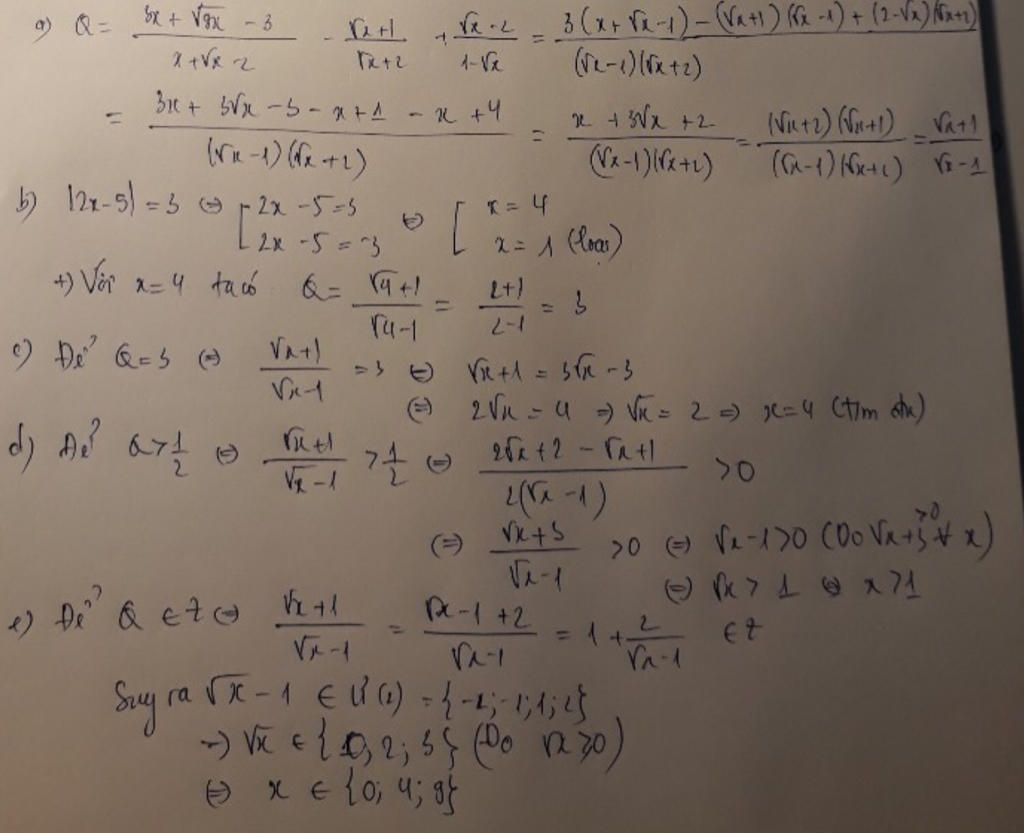 a) Q = (3x + √9x - 3)/(x + √x - 2) - (√x+1)/(√x+2) + (√x-2)/(1-√x) = (3(x+√x-1) - (√x+1)(√x-1) + (2-√x)(√x+2))/((√x-1)(√x+2))
= (3x + 3√x - 3 - x + 1 - x + 4)/((√x-1)(√x+2)) = (x + 3√x + 2)/((√x-1)(√x+2)) = ((√x+2)(√x+1))/((√x-1)(√x+2)) = (√x+1)/(√x-1)
b) |2x-5| = 3 ⇔ [ 2x - 5 = 3 ; 2x - 5 = -3 ⇔ [ x = 4 ; x = 1 (loại)
+) Với x = 4 ta có Q = (√4+1)/(√4-1) = (2+1)/(2-1) = 3
c) Để Q = 3 ⇔ (√x+1)/(√x-1) = 3 ⇔ √x+1 = 3√x - 3
⇔ 2√x = 4 ⇒ √x = 2 ⇒ x = 4 (t/m đk)
d) Để Q > 1/2 ⇔ (√x+1)/(√x-1) > 1/2 ⇔ (2√x + 2 - √x + 1)/(2(√x-1)) > 0
⇔ (√x+3)/(√x-1) > 0 ⇔ √x-1 > 0 (Do √x+3 > 0 ∀ x)
⇔ √x > 1 ⇔ x > 1
e) Để Q ∈ Z ⇔ (√x+1)/(√x-1) = (√x-1+2)/(√x-1) = 1 + 2/(√x-1) ∈ Z
Suy ra √x - 1 ∈ Ư(2) = {-2; -1; 1; 2}
→ √x ∈ {0; 2; 3} (Do √x ≥ 0)
⇔ x ∈ {0; 4; 9}